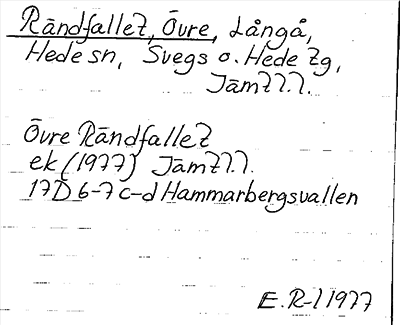 Rändfallet, Övre, Långå,
Hede sn, Svegs o. Hede tg,
Jämtl.l.
Övre Rändfallet
ek (1977) Jämtl.l.
17D 6-7 c-d Hammarbergsvallen
E.R-l 1977